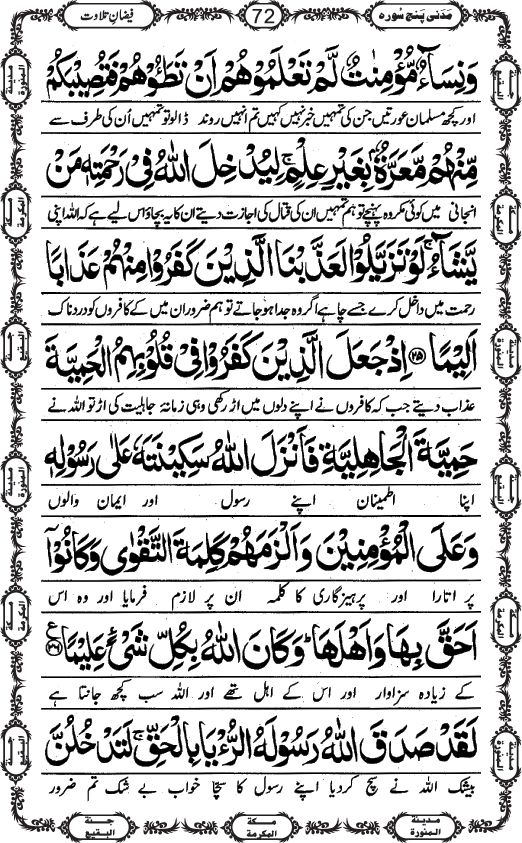 مَدَنی پنج سُورہ
72
فیضانِ تلاوت
وَنِسَآءٌ مُّؤْمِنٰتٌ لَّمْ تَعْلَمُوْهُمْ اَنْ تَطَـُٔوْهُمْ فَتُصِيْبَكُمْ
اور کچھ مسلمان عورتیں جن کی تمہیں خبر نہیں کہیں تم انہیں روند ڈالو تو تمہیں اُن کی طرف سے
مِّنْهُمْ مَّعَرَّةٌۢ بِغَيْرِ عِلْمٍ ۚ لِيُدْخِلَ اللّٰهُ فِيْ رَحْمَتِهٖ مَنْ
انجانی میں کوئی مکروہ پہنچے تو ہم تمہیں ان کی قتال کی اجازت دیتے ان کا یہ بچاؤ اس لیے ہے کہ اللہ اپنی
يَّشَآءُ ۚ لَوْ تَزَيَّلُوْا لَعَذَّبْنَا الَّذِيْنَ كَفَرُوْا مِنْهُمْ عَذَابًا
رحمت میں داخل کرے جسے چاہے اگر وہ جدا ہو جاتے تو ہم ضرور ان میں کے کافروں کو دردناک
اَلِيْمًا ﴿۲۵﴾ اِذْ جَعَلَ الَّذِيْنَ كَفَرُوْا فِيْ قُلُوْبِهِمُ الْحَمِيَّةَ
عذاب دیتے جب کہ کافروں نے اپنے دلوں میں اڑ رکھی وہی زمانۂ جاہلیت کی اڑ تو اللہ نے
حَمِيَّةَ الْجَاهِلِيَّةِ فَاَنْزَلَ اللّٰهُ سَكِيْنَتَهٗ عَلٰى رَسُوْلِهٖ
اپنا اطمینان اپنے رسول اور ایمان والوں
وَعَلَى الْمُؤْمِنِيْنَ وَاَلْزَمَهُمْ كَلِمَةَ التَّقْوٰى وَكَانُوْۤا
پر اتارا اور پرہیزگاری کا کلمہ ان پر لازم فرمایا اور وہ اس
اَحَقَّ بِهَا وَاَهْلَهَا ؕ وَكَانَ اللّٰهُ بِكُلِّ شَيْءٍ عَلِيْمًا ﴿۲۶﴾ ع
کے زیادہ سزاوار اور اس کے اہل تھے اور اللہ سب کچھ جانتا ہے
لَقَدْ صَدَقَ اللّٰهُ رَسُوْلَهُ الرُّءْيَا بِالْحَقِّ ۚ لَتَدْخُلُنَّ
بیشک اللہ نے سچ کردیا اپنے رسول کا سچا خواب بے شک تم ضرور
جنۃ البقیع
مکۃ المکرمۃ
مدینۃ المنورۃ
جنۃ البقیع
مکۃ المکرمۃ
مدینۃ المنورۃ
مدینۃ المنورۃ
مکۃ المکرمۃ
جنۃ البقیع
مدینۃ المنورۃ
مکۃ المکرمۃ
جنۃ البقیع
مدینۃ المنورۃ
مکۃ المکرمۃ
جنۃ البقیع